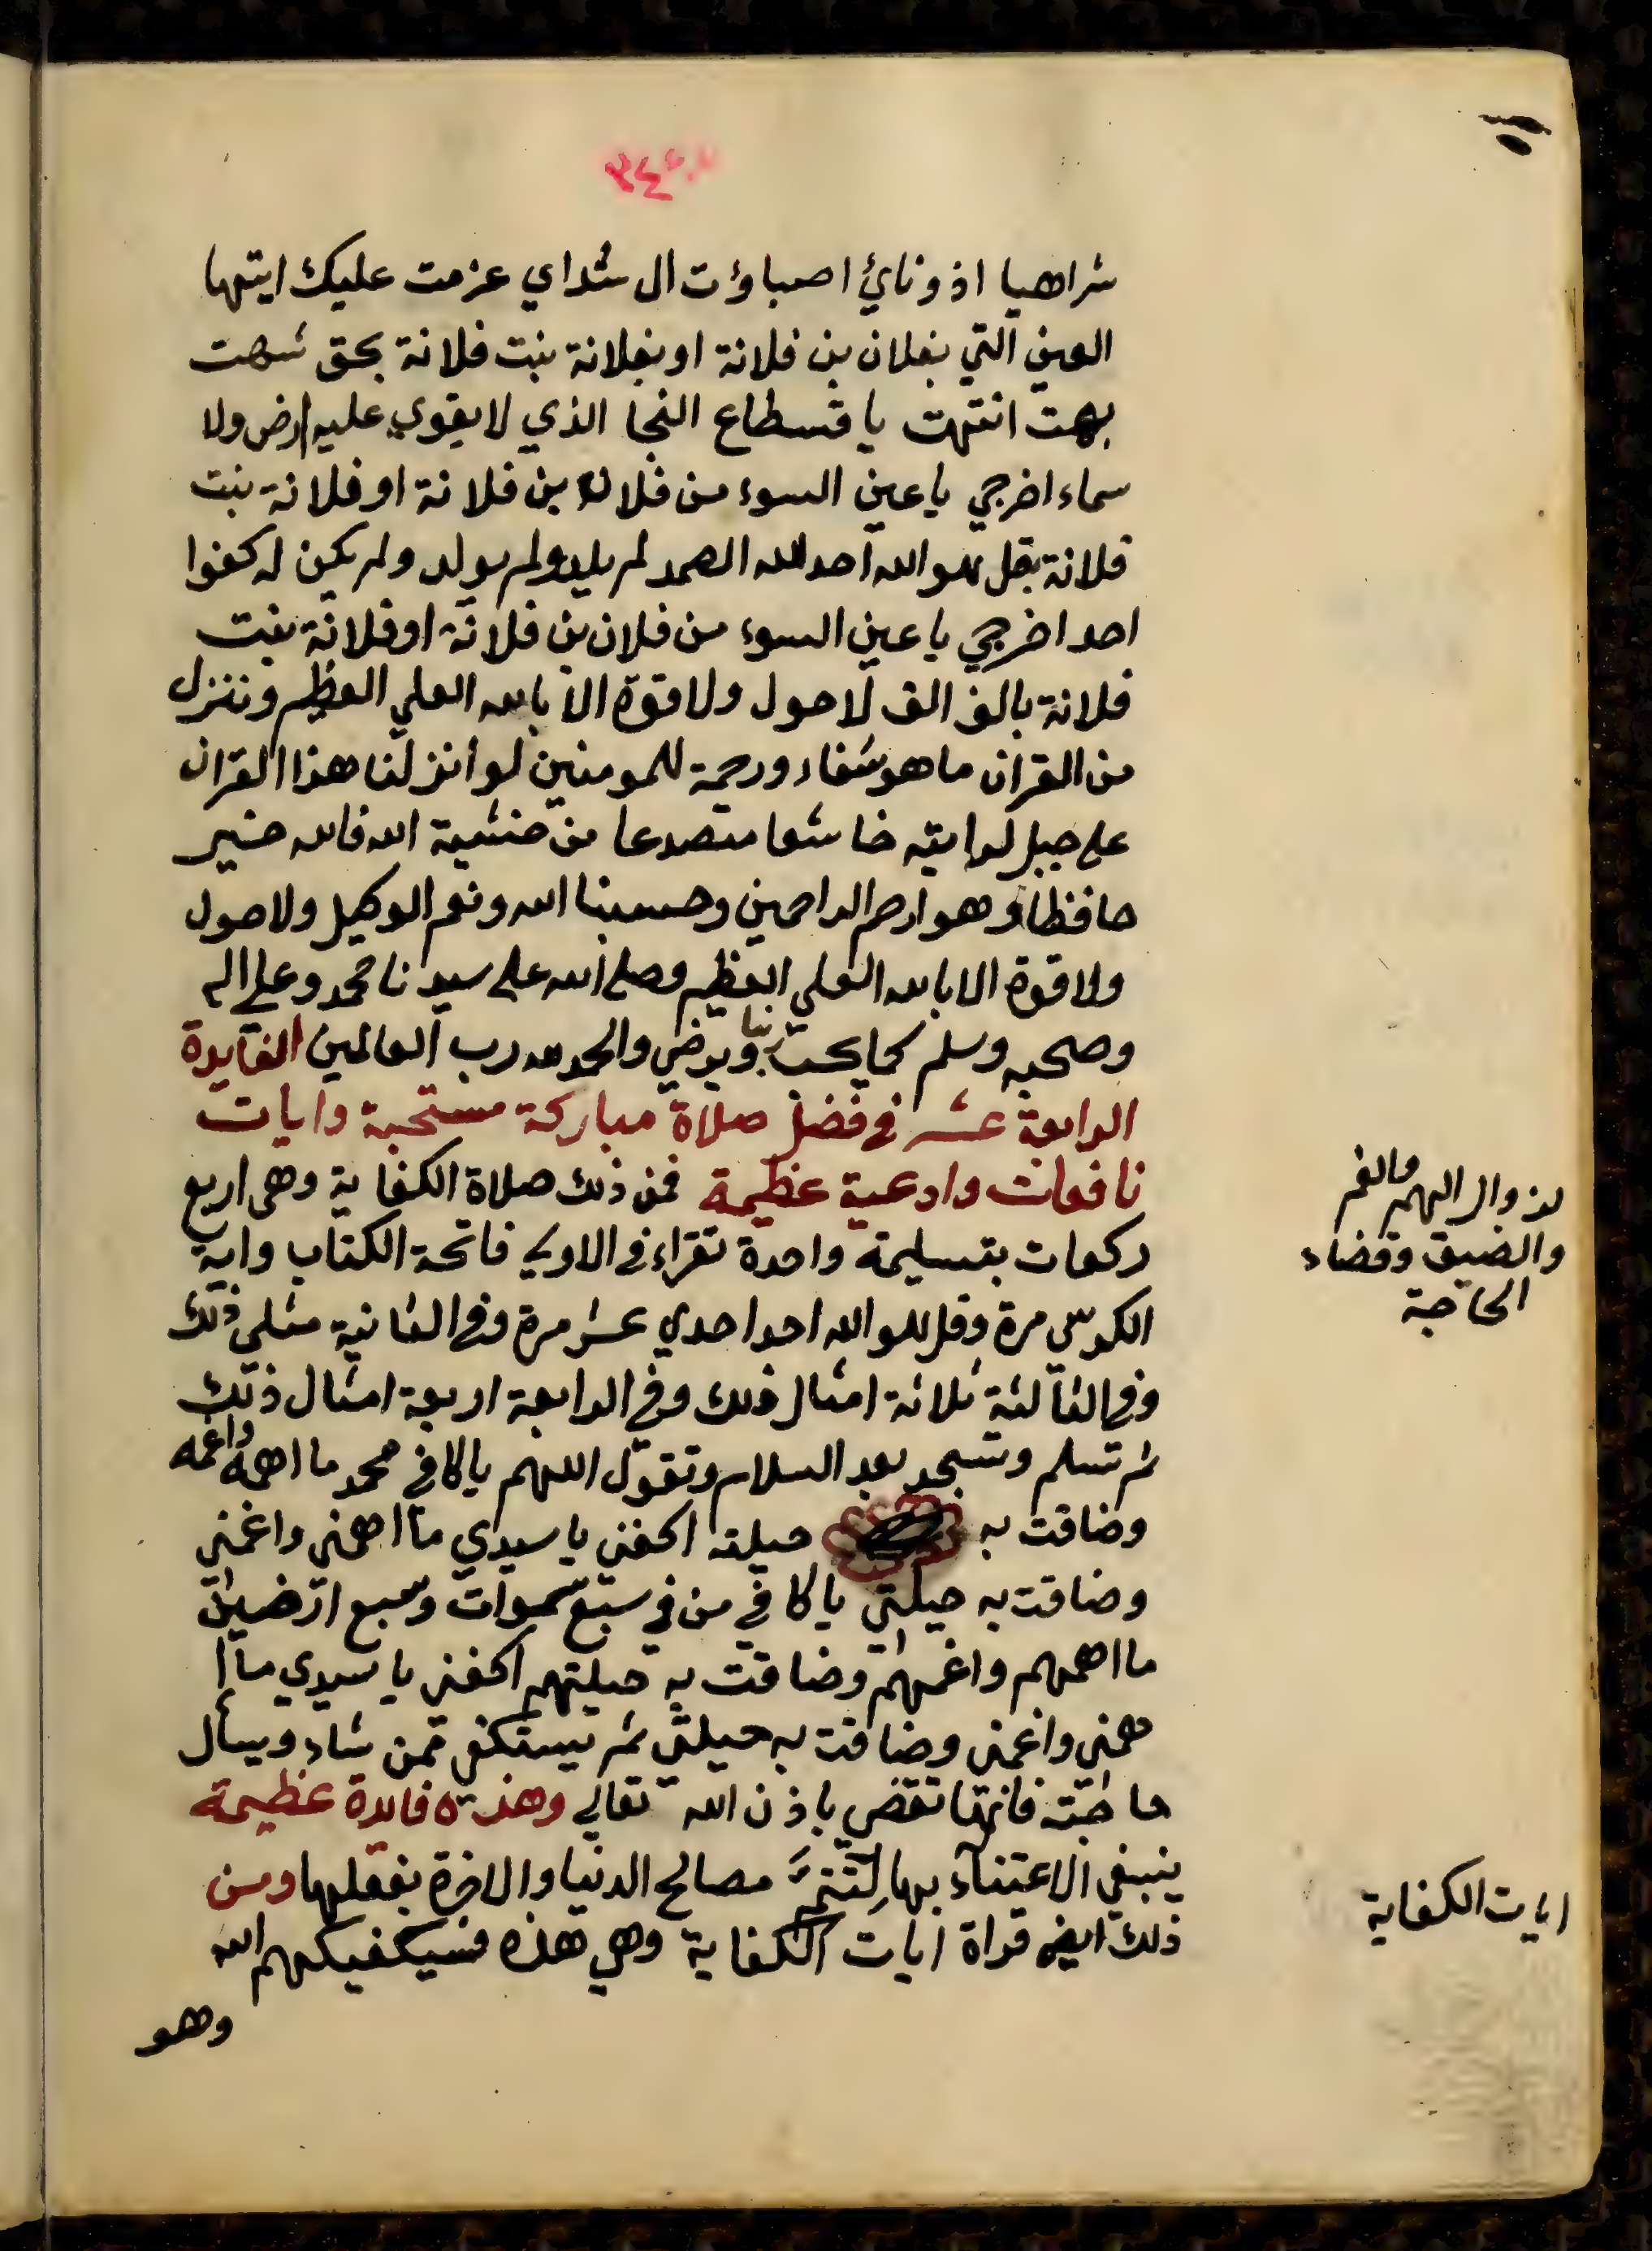 ٣٤
شراهيا اذوناي اصباؤت ال شداي عزمت عليك ايتها
العين التي بفلان بن فلانة او بفلانة بنت فلانة بحق شهت
بهت انتهت يا قسطاع النجا الذي لا يقوي عليه ارض ولا
سماء اخرجي يا عين السوء من فلان بن فلانة او فلانة بنت
فلانة بقل هو الله احد الله الصمد لم يلد ولم يولد ولم يكن له كفوا
احد اخرجي يا عين السوء من فلان بن فلانة او فلانة بنت
فلانة بالف الف لا حول ولا قوة الا بالله العلي العظيم وننزل
من القران ما هو شفاء ورحمة للمومنين لو انزلنا هذا القران
على جبل لرايته خاشعا متصدعا من خشية الله فالله خير
حافظا وهو ارحم الراحمين وحسبنا الله ونعم الوكيل ولا حول
ولا قوة الا بالله العلي العظيم وصلى الله على سيدنا محمد وعلى اله
وصحبه وسلم كما يحب ربنا ويرضي والحمد لله رب العالمين الفايدة
الرابعة عشر في فضل صلاة مباركة مستحبة وايات
نافعات وادعية عظيمة فمن ذلك صلاة الكفاية وهي اربع
ركعات بتسليمة واحدة تقراء في الاولى فاتحة الكتاب واية
الكرسي مرة وقل هو الله احد احدي عشر مرة وفي الثانية مثلي ذلك
وفي الثالثة ثلاثة امثال ذلك وفي الرابعة اربعة امثال ذلك
ثم تسلم وتسجد بعد السلام وتقول اللهم يا كافي محمد ما اهمه واغمه
وضاقت به حيلته اكفني يا سيدي ما اهمني واغمني
وضاقت به حيلتي يا كافي من في سبع سموات وسبع ارضين
ما اهمهم واغمهم وضاقت به حيلتهم اكفني يا سيدي ما ا
همني واغمني وضاقت به حيلتي ثم يستكفي ممن شاء ويسأل
حاجته فانها تقضي باذن الله تعالي وهذه فائدة عظيمة
ينبغي الاعتناء بها لتتم مصالح الدنيا والاخرة بفعلها ومن
ذلك ايضا قراة ايات الكفاية وهي هذه فسيكفيكهم الله
وهو
لزوال الهم والغم
والضيق وقضاء
الحاجة
ايات الكفاية